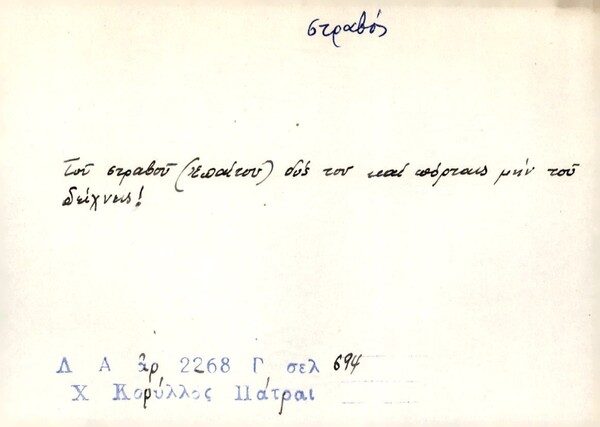 στραβός
Τοῦ στραβοῦ (ἐπαίτου) δός του καί πόρταις μήν τοῦ
δείχνεις!
Λ Α ἀρ 2268 Γ σελ 694
Χ Κορύλλος Πάτραι